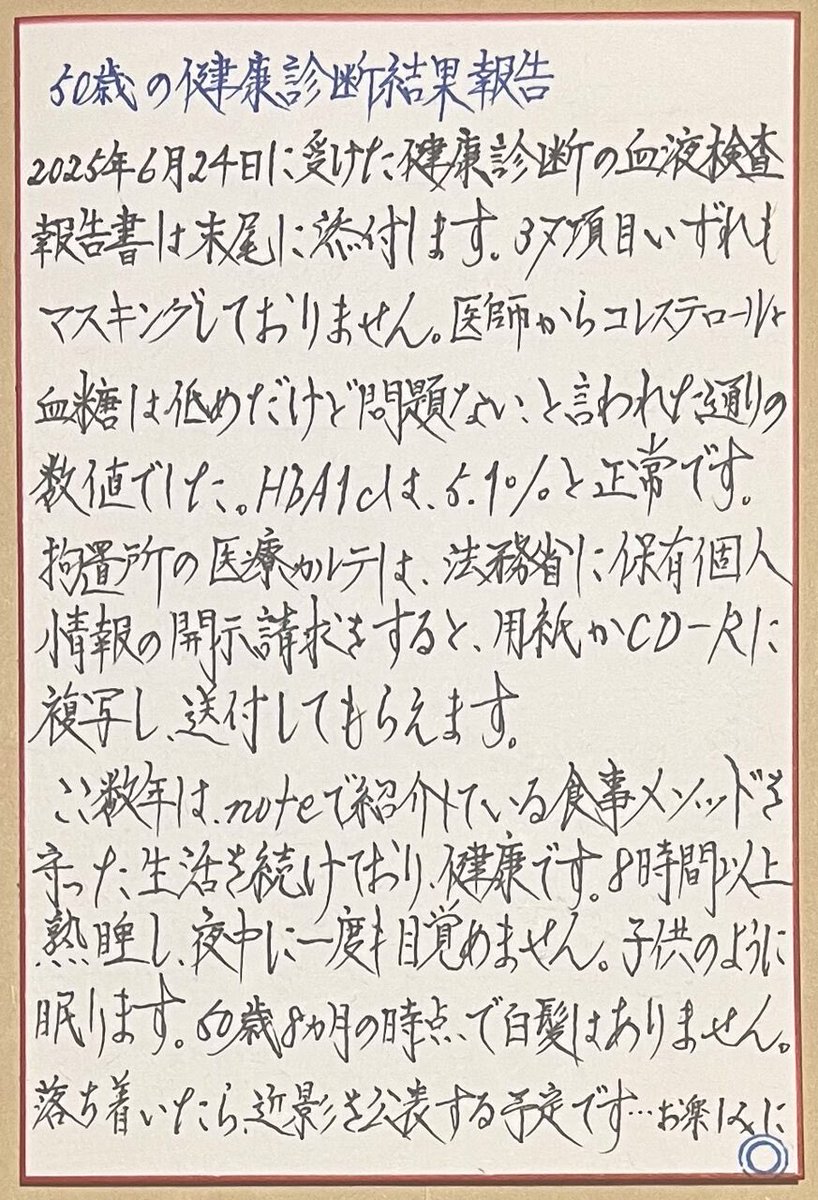 50歳の健康診断結果報告
2025年6月24日に受けた健康診断の血液検査
報告書は末尾に添付します。37項目いずれも
マスキングしておりません。医師からコレステロールと
血糖は低めだけど問題ない、と言われた通りの
数値でした。HbA1cは、5.1%と正常です。
拘置所の医療カルテは、法務省に保有個人
情報の開示請求をすると、用紙かCD-Rに
複写し、送付してもらえます。
ここ数年は、noteで紹介している食事メソッドを
守った生活を続けており、健康です。8時間以上
熟睡し、夜中に一度も目覚めません。子供のように
眠ります。50歳8ヵ月の時点で白髪はありません。
落ち着いたら、近影を公表する予定です…お楽しみに